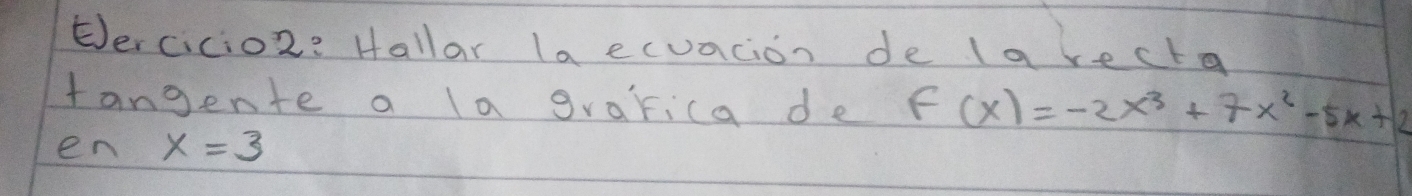 Ejercicio2: Hallar la ecuación de la recta
tangente a la gráfica de F(x)=-2x³+7x²-5x+2
en x=3